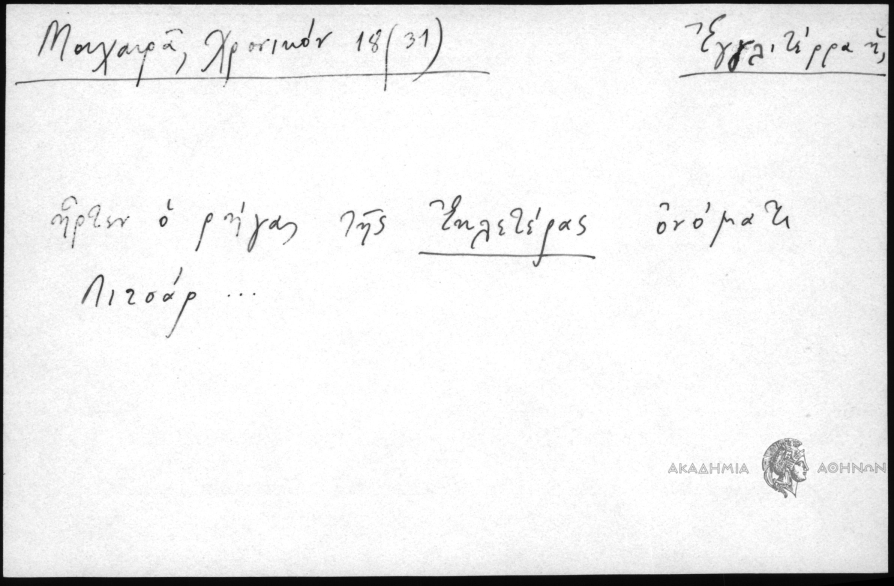 Μαχαιρᾶ, Χρονικόν 18 (31)
Ἐγγλιτέρρα ἡ
ἦρτεν ὁ ρήγας τῆς Ἐγκλετέρας ὀνόματι
Λιτσάρ ...
ΑΚΑΔΗΜΙΑ ΑΘΗΝΩΝ